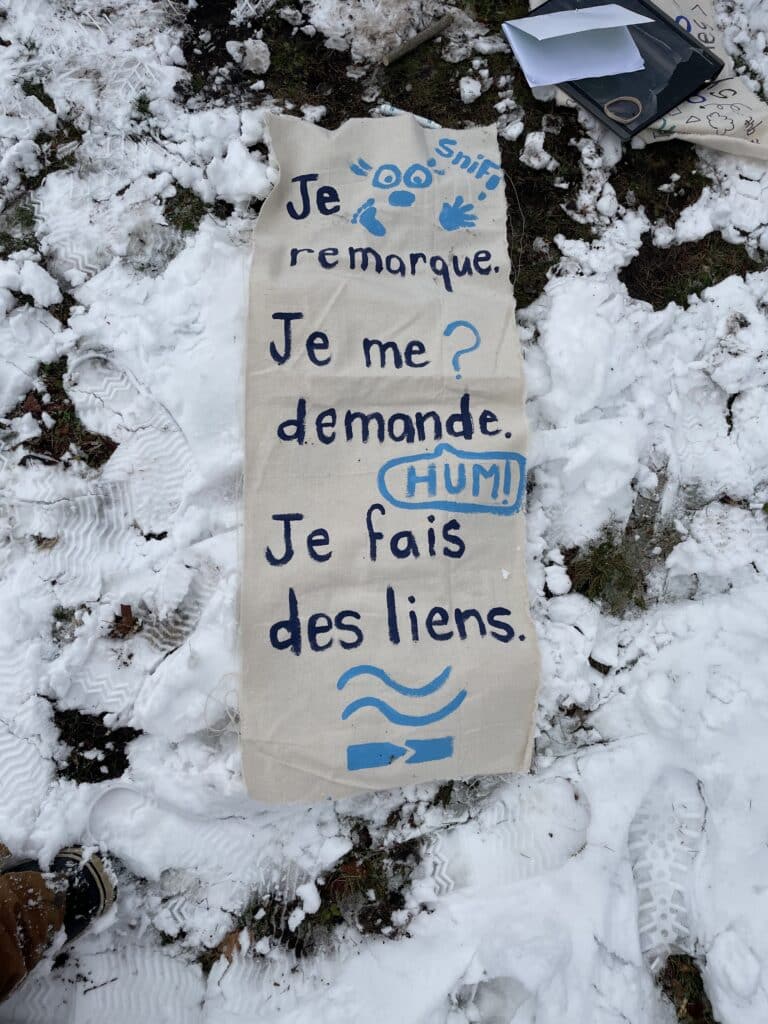 Snif!
Je
remarque.
Je me ?
demande.
HUM!
Je fais
des liens.